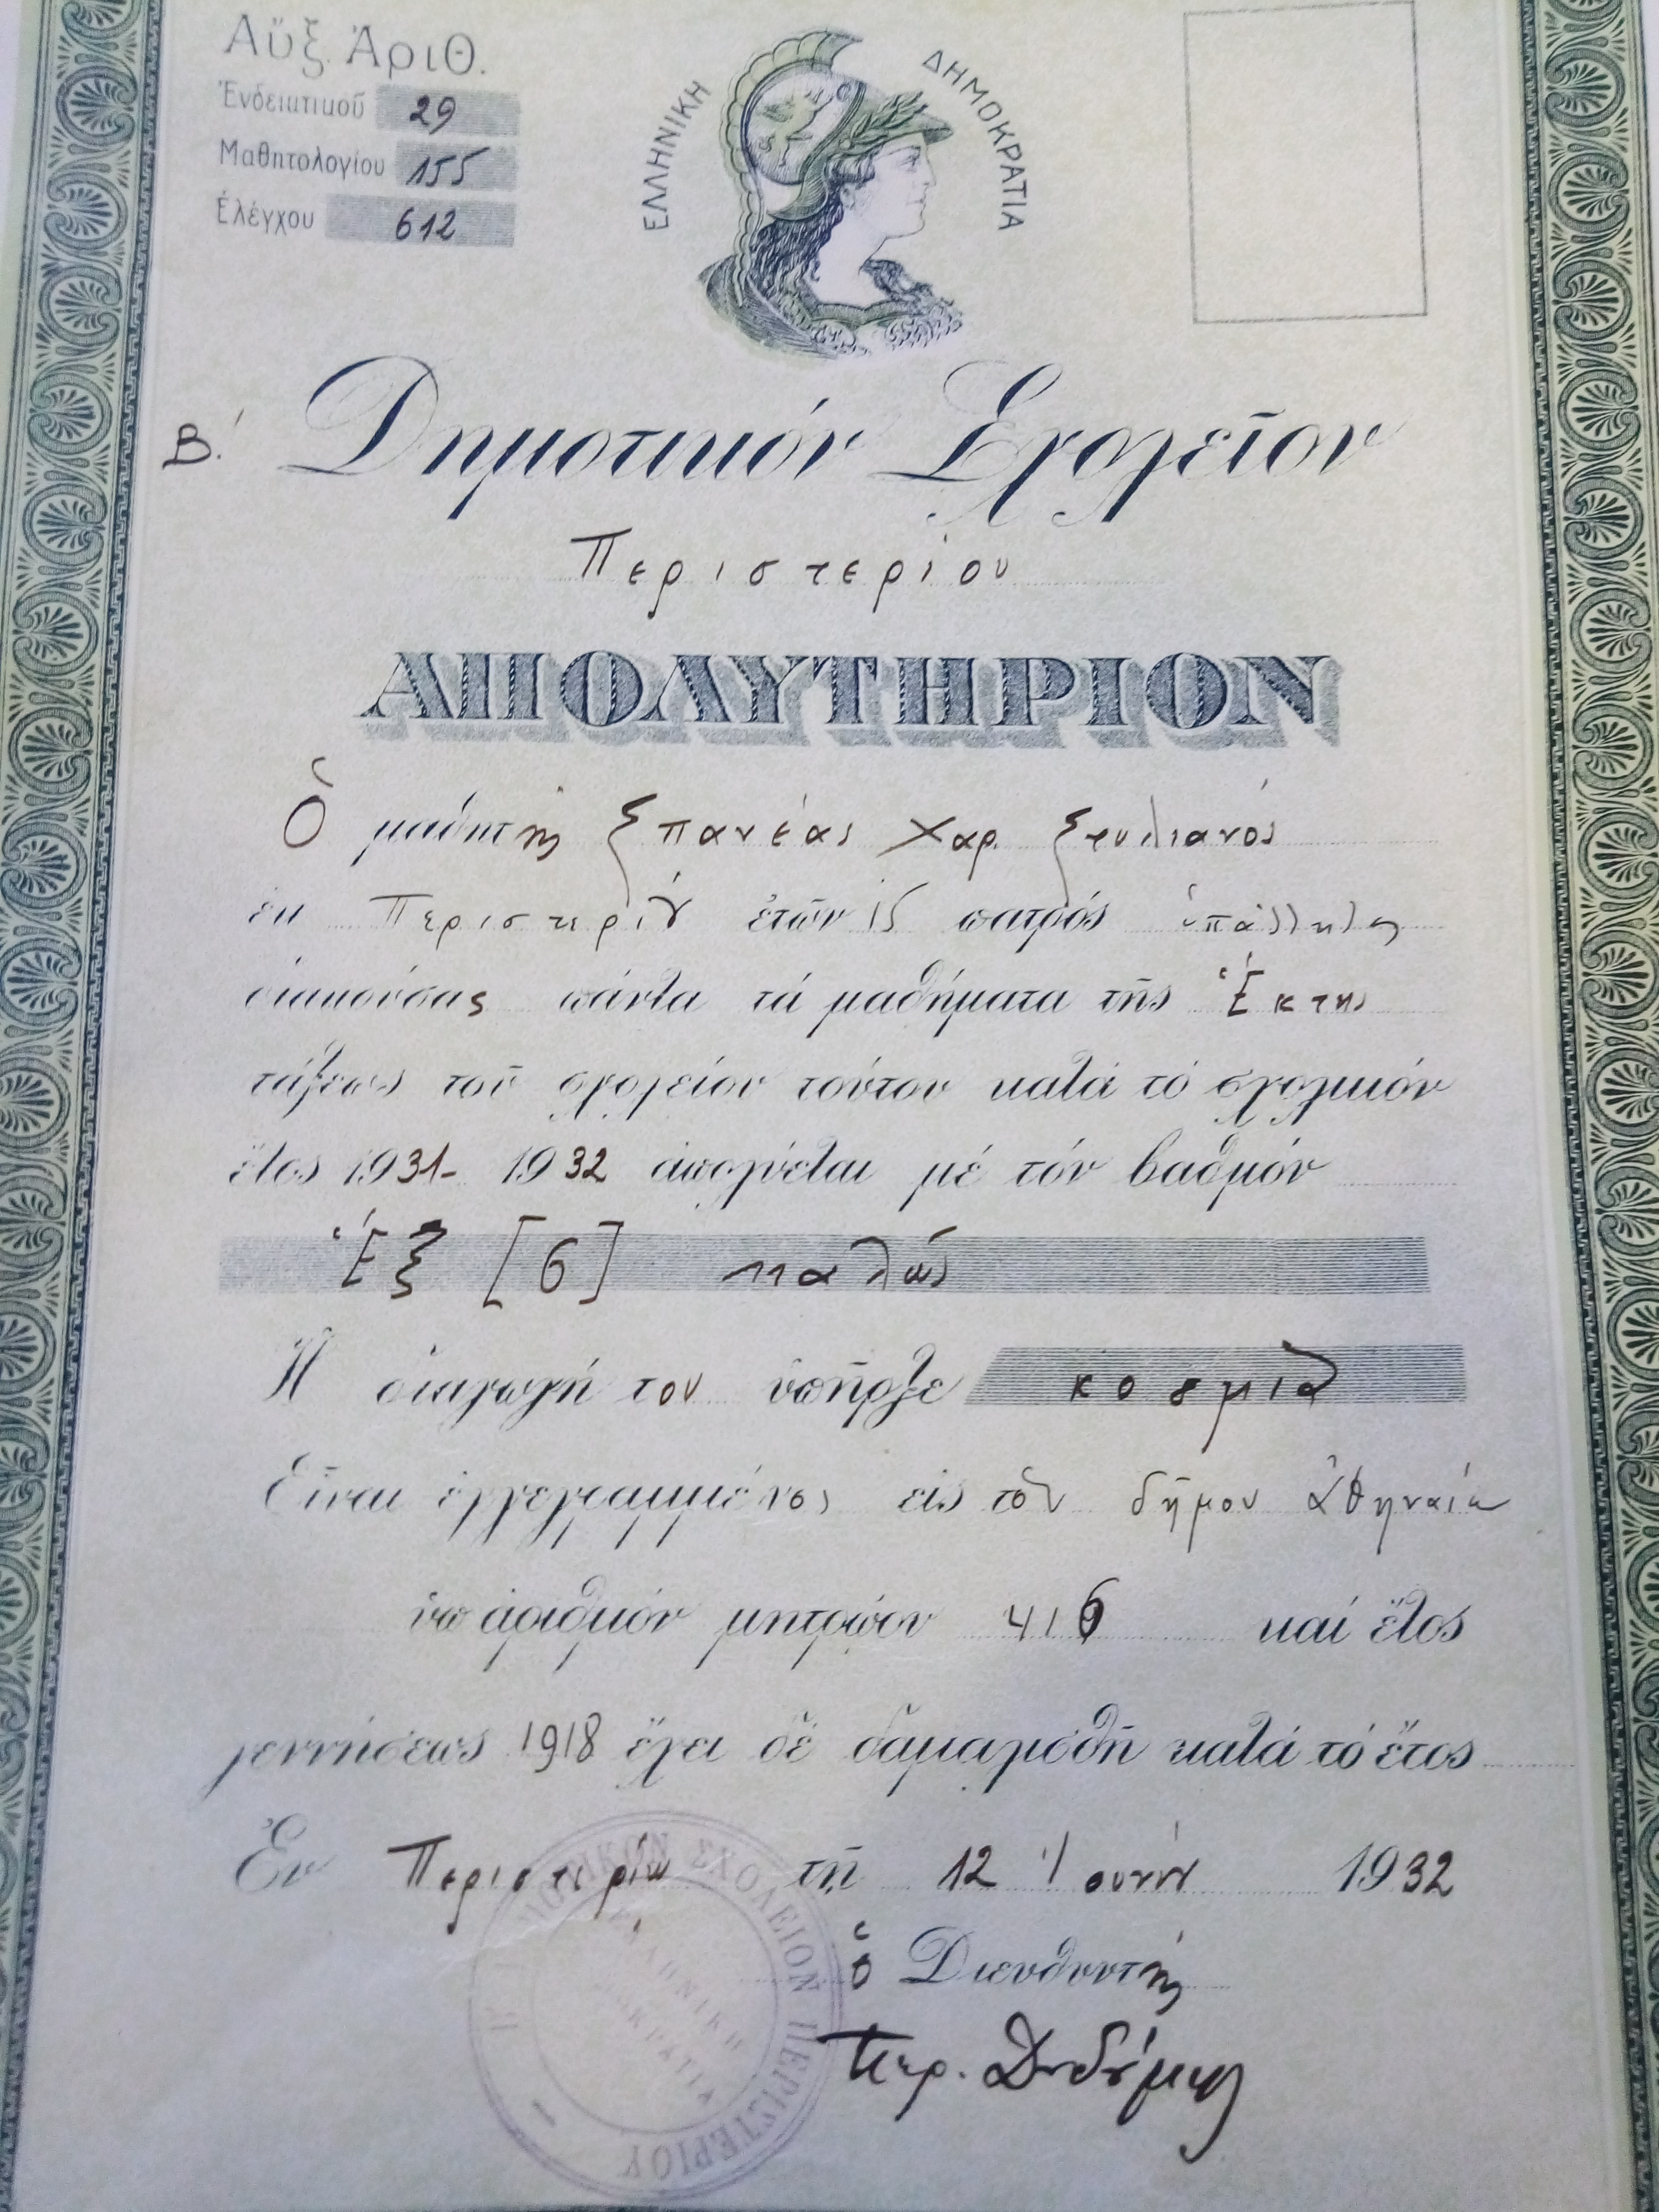 Αὔξ. Ἀριθ.
Ἐνδεικτικοῦ 29
Μαθητολογίου 155
Ἐλέγχου 612
ΕΛΛΗΝΙΚΗ ΔΗΜΟΚΡΑΤΙΑ
Β΄. Δημοτικόν Σχολεῖον
Περιστερίου
ΑΠΟΛΥΤΗΡΙΟΝ
Ὁ μαθητής Σπανέας Χαρ. Στυλιανός
ἐκ Περιστερίου ἐτῶν πατρός
διακούσας πάντα τά μαθήματα τῆς Ἕκτης
τάξεως τοῦ σχολείου τούτου κατά τό σχολικόν
ἔτος 1931- 1932 ἀπολύεται μέ τόν βαθμόν
Ἕξ [6] καλῶς
Ἡ διαγωγή του ὑπῆρξε κοσμία
Εἶναι ἐγγεγραμμένος εἰς τόν δῆμον Ἀθηναίων
ὑπ ἀριθμόν μητρώου 416 καί ἔτος
γεννήσεως 1918 ἔχει δέ δαμαλισθῆ κατά τό ἔτος
Ἐν Περιστερίῳ τῇ 12 Ἰουνίου 1932
ὁ Διευθυντής
ΔΗΜΟΤΙΚΟΝ ΣΧΟΛΕΙΟΝ ΠΕΡΙΣΤΕΡΙΟΥ
ΕΛΛΗΝΙΚΗ
ΔΗΜΟΚΡΑΤΙΑ